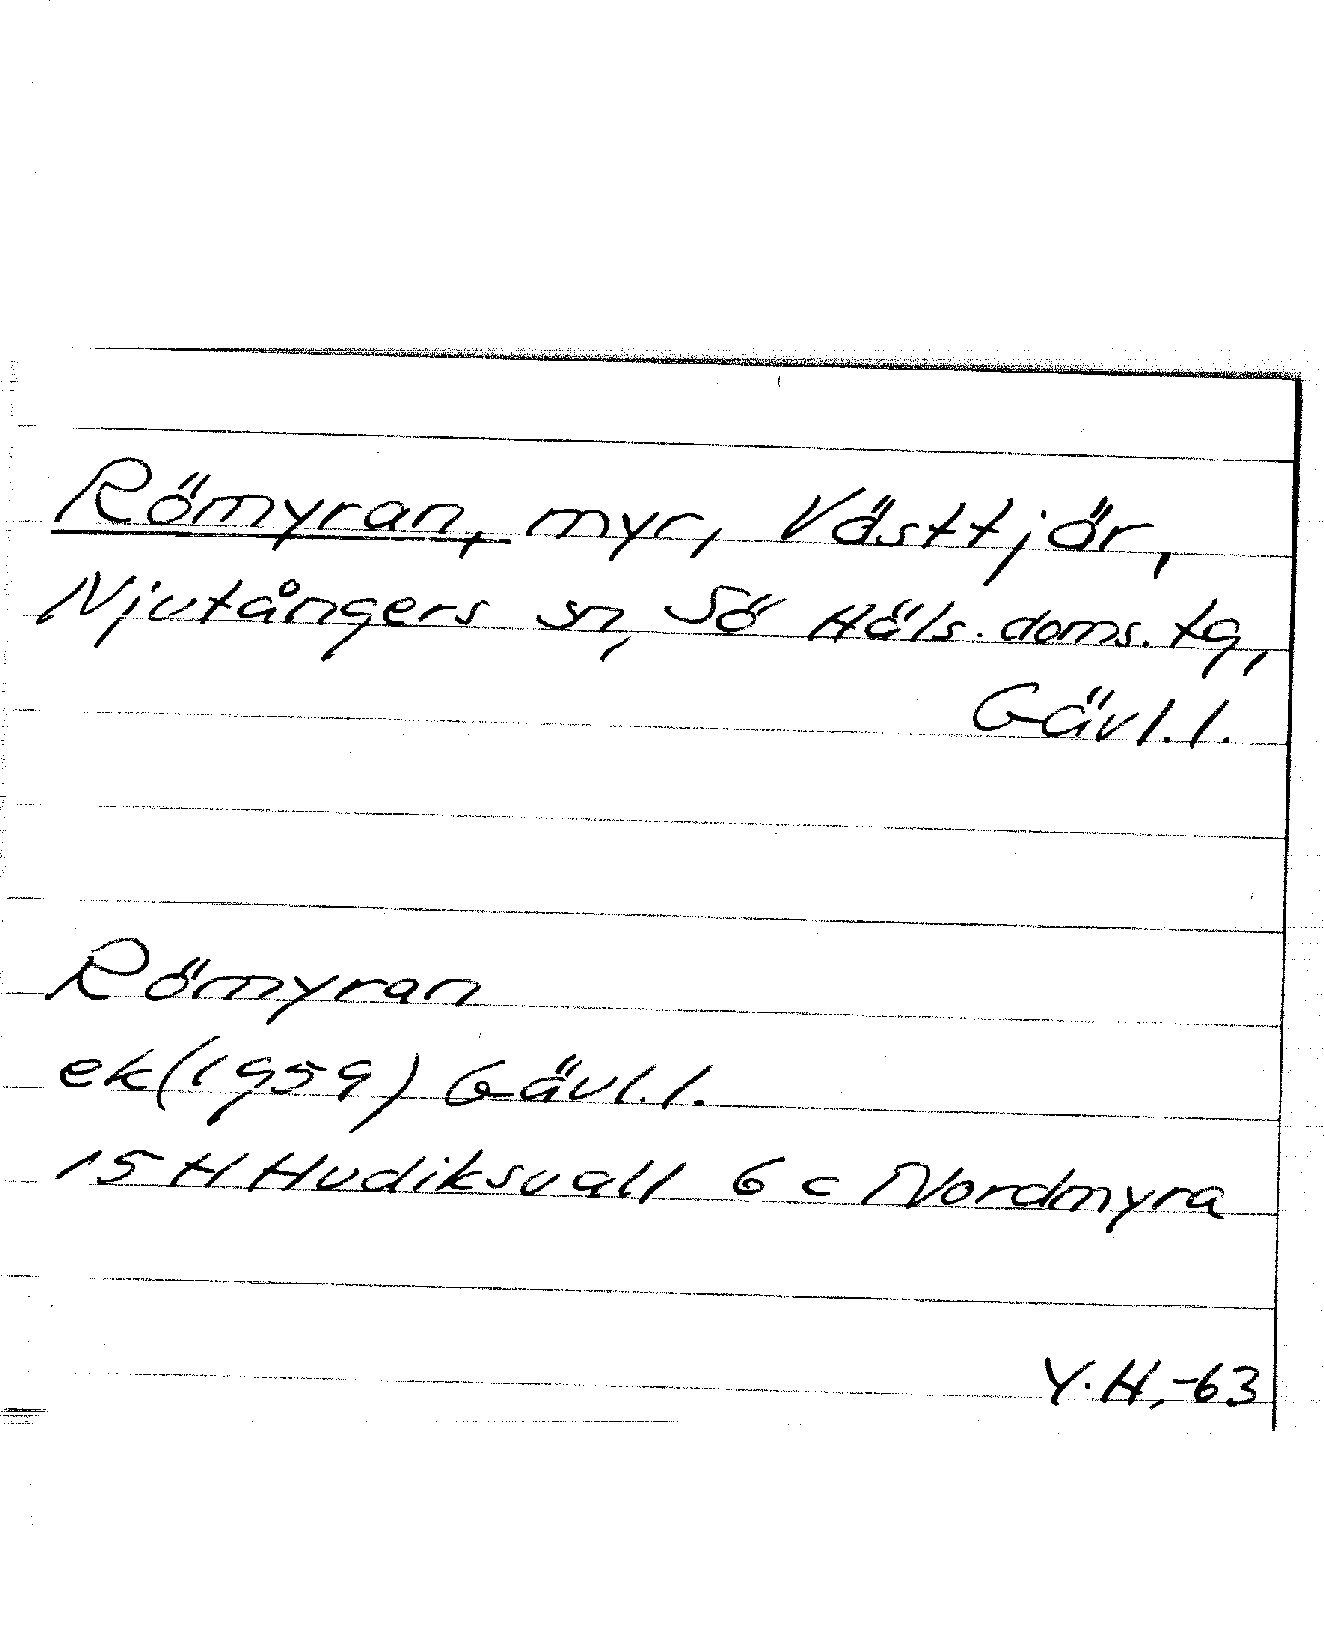 Römyran, myr, Västtjär,
Njutångers sn, Sö Häls. doms. tg,
Gävl.l.
Römyran
ek(1959) Gävl.l.
15 H Hudiksvall 6 c Nordmyra
Y.H,-63